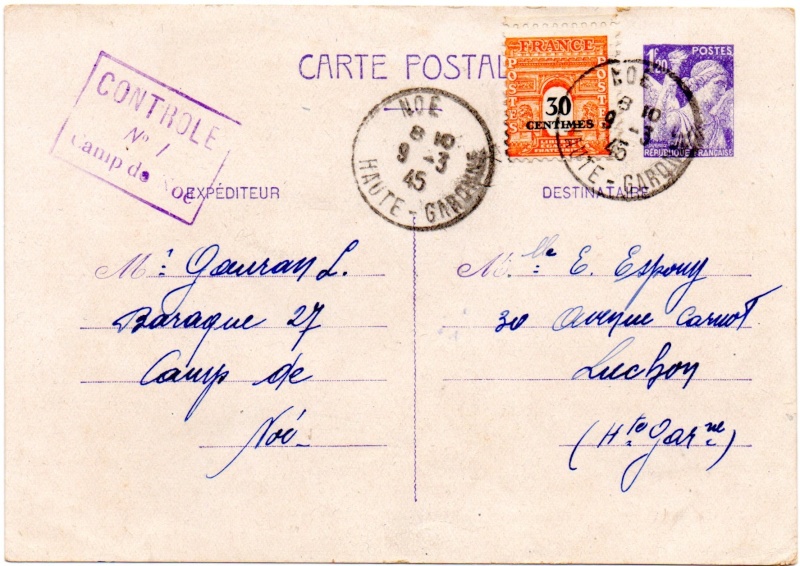 CARTE POSTAL
CONTROLE
N° 1
Camp de Noé
NOE
8 10
9 -3
45
HAUTE - GARONNE
FRANCE
POSTES
POSTES
30
CENTIMES
1F20
POSTES
RÉPUBLIQUE FRANÇAISE
NOE
8 10
9 -3
45
HAUTE - GARONNE
EXPÉDITEUR
Mr Gauran L.
Baraque 27
Camp de
Noé
DESTINATAIRE
Mlle E. Espouy
30 Avenue Carnot
Luchon
(Hte Garne)